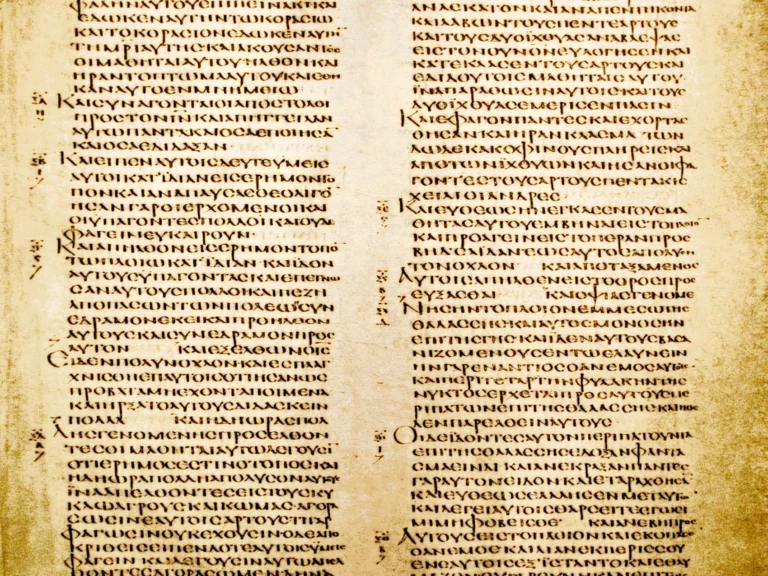 ΦΑΛΗΝΑΥΤΟΥΕΠΙΠΙΝΑΚΙΚΑΙ
ΕΔΩΚΕΝΑΥΤΗΝΤΩΚΟΡΑϹΙΩ
ΚΑΙΤΟΚΟΡΑϹΙΟΝΕΔΩΚΕΝΑΥΤΗ
ΤΗΜΡΙΑΥΤΗϹΚΑΙΑΚΟΥϹΑΝΤΕϹ
ΟΙΜΑΘΗΤΑΙΑΥΤΟΥΗΛΘΟΝΚΑΙ
ΗΡΑΝΤΟΠΤΩΜΑΑΥΤΟΥΚΑΙΕΘΗ
ΚΑΝΑΥΤΟΕΝΜΝΗΜΕΙΩ
ΚΑΙϹΥΝΑΓΟΝΤΑΙΟΙΑΠΟϹΤΟΛΟΙ
ΠΡΟϹΤΟΝΙΝΚΑΙΑΠΗΓΓΕΙΛΑΝ
ΑΥΤΩΠΑΝΤΑΚΑΙΟϹΑΕΠΟΙΗϹΑ
ΚΑΙΟϹΑΕΔΙΔΑΞΑΝ
ΚΑΙΕΙΠΕΝΑΥΤΟΙϹΔΕΥΤΕΥΜΕΙϹ
ΑΥΤΟΙΚΑΤΙΔΙΑΝΕΙϹΕΡΗΜΟΝΤΟ
ΠΟΝΚΑΙΑΝΑΠΑΥϹΑϹΘΕΟΛΙΓΟ
ΗϹΑΝΓΑΡΟΙΕΡΧΟΜΕΝΟΙΚΑΙ
ΟΙΥΠΑΓΟΝΤΕϹΠΟΛΛΟΙΚΑΙΟΥΔΕ
ΦΑΓΕΙΝΕΥΚΑΙΡΟΥΝ
ΚΑΙΑΠΗΛΘΟΝΕΙϹΕΡΗΜΟΝΤΟΠΟ
ΤΩΠΛΟΙΩΚΑΤΙΔΙΑΝ ΚΑΙΙΔΟΝ
ΑΥΤΟΥϹΥΠΑΓΟΝΤΑϹΚΑΙΕΠΕΓΝΩ
ϹΑΝΑΥΤΟΥϹΠΟΛΛΟΙΚΑΙΠΕΖΗ
ΑΠΟΠΑϹΩΝΤΩΝΠΟΛΕΩΝϹΥΝ
ΕΔΡΑΜΟΝΕΚΕΙΚΑΙΠΡΟΗΛΘΟΝ
ΑΥΤΟΥϹΚΑΙϹΥΝΕΔΡΑΜΟΝΠΡΟϹ
ΑΥΤΟΝ ΚΑΙΕΞΕΛΘΩΝΟΙϹ
ΕΙΔΕΝΠΟΛΥΝΟΧΛΟΝΚΑΙΕϹΠΛΑΓ
ΧΝΙϹΘΗΕΠΑΥΤΟΙϹΟΤΙΗϹΑΝΩϹ
ΠΡΟΒΑΤΑΜΗΕΧΟΝΤΑΠΟΙΜΕΝΑ
ΚΑΙΗΡΞΑΤΟΑΥΤΟΥϹΔΙΔΑϹΚΕΙΝ
ΠΟΛΛΑ ΚΑΙΗΔΗΩΡΑϹΠΟΛ
ΛΗϹΓΕΝΟΜΕΝΗϹΠΡΟϹΕΛΘΟΝ
ΤΕϹΟΙΜΑΘΗΤΑΙΑΥΤΩΛΕΓΟΥϹΙ
ΟΤΙΕΡΗΜΟϹΕϹΤΙΝΟΤΟΠΟϹΚΑΙ
ΗΔΗΩΡΑΠΟΛΛΗΑΠΟΛΥϹΟΝΑΥΤΟΥϹ
ΙΝΑΑΠΕΛΘΟΝΤΕϹΕΙϹΤΟΥϹΚΥ
ΚΛΩΑΓΡΟΥϹΚΑΙΚΩΜΑϹΑΓΟΡΑ
ϹΩϹΙΝΕΑΥΤΟΙϹΑΡΤΟΥϹΤΙΓΑΡ
ΦΑΓΩϹΙΝΟΥΚΕΧΟΥϹΙΝΟΔΕΑΠΟ
ΚΡΙΘΕΙϹΕΙΠΕΝΔΟΤΕΑΥΤΟΙϹΥΜΕΙϹ
ΦΑΓΕΙΝΚΑΙΛΕΓΟΥϹΙΝΑΥΤΩΑΠΕΛ
ΘΟΝΤΕϹΑΓΟΡΑϹΩΜΕΝΔΗΝΑ
ΚΑΙΛΑΒΩΝΤΟΥϹΠΕΝΤΕΑΡΤΟΥϹ
ΚΑΙΤΟΥϹΔΥΟΙΧΘΥΑϹΑΝΑΒΛΕΨΑϹ
ΕΙϹΤΟΝΟΥΝΟΝΕΥΛΟΓΗϹΕΝΚΑΙ
ΚΑΤΕΚΛΑϹΕΝΤΟΥϹΑΡΤΟΥϹΚΑΙ
ΕΔΙΔΟΥΤΟΙϹΜΑΘΗΤΑΙϹΑΥΤΟΥ
ΙΝΑΠΑΡΑΘΩϹΙΝΑΥΤΟΙϹΚΑΙΤΟΥϹ
ΔΥΟΙΧΘΥΑϹΕΜΕΡΙϹΕΝΠΑϹΙΝ
ΚΑΙΕΦΑΓΟΝΠΑΝΤΕϹΚΑΙΕΧΟΡΤΑϹ
ΘΗϹΑΝΚΑΙΗΡΑΝΚΛΑϹΜΑΤΩΝ
ΔΩΔΕΚΑΚΟΦΙΝΟΥϹΠΛΗΡΕΙϹΚΑΙ
ΑΠΟΤΩΝΙΧΘΥΩΝΚΑΙΗϹΑΝΟΙΦΑ
ΓΟΝΤΕϹΤΟΥϹΑΡΤΟΥϹΠΕΝΤΑΚΙϹ
ΧΕΙΛΙΟΙΑΝΔΡΕϹ
ΚΑΙΕΥΘΕΩϹΗΝΕΓΚΑϹΕΝΤΟΥϹΜΑ
ΘΗΤΑϹΑΥΤΟΥΕΜΒΗΝΑΙΕΙϹΤΟΠΛΟΙΟ
ΚΑΙΠΡΟΑΓΕΙΝΕΙϹΤΟΠΕΡΑΝΠΡΟϹ
ΒΗΔϹΑΙΔΑΝΕΩϹΑΥΤΟϹΑΠΟΛΥΕΙ
ΤΟΝΟΧΛΟΝ ΚΑΙΑΠΟΤΑΞΑΜΕΝΟϹ
ΑΥΤΟΙϹΑΠΗΛΘΕΝΕΙϹΤΟΟΡΟϹΠΡΟϹ
ΕΥΞΑϹΘΑΙ ΚΑΙΟΨΙΑϹΓΕΝΟΜΕ
ΝΗϹΗΝΤΟΠΛΟΙΟΝΕΜΜΕϹΩΤΗϹ
ΘΑΛΑϹϹΗϹΚΑΙΑΥΤΟϹΜΟΝΟϹΗΝ
ΕΠΙΤΗϹΓΗϹΚΑΙΙΔΕΝΑΥΤΟΥϹΒΑϹΑ
ΝΙΖΟΜΕΝΟΥϹΕΝΤΩΕΛΑΥΝΕΙΝ
ΗΝΓΑΡΕΝΑΝΤΙΟϹΟΑΝΕΜΟϹΑΥΤΟΙϹ
ΚΑΙΠΕΡΙΤΕΤΑΡΤΗΝΦΥΛΑΚΗΝΤΗϹ
ΝΥΚΤΟϹΕΡΧΕΤΑΙΠΡΟϹΑΥΤΟΥϹΠΕ
ΡΙΠΑΤΩΝΕΠΙΤΗϹΘΑΛΑϹϹΗϹΚΑΙΗΘΕ
ΛΕΝΠΑΡΕΛΘΕΙΝΑΥΤΟΥϹ
ΟΙΔΕΙΔΟΝΤΕϹΑΥΤΟΝΠΕΡΙΠΑΤΟΥΝΤΑ
ΕΠΙΤΗϹΘΑΛΑϹϹΗϹΕΔΟΞΑΝΦΑΝΤΑ
ϹΜΑΕΙΝΑΙ ΚΑΙΑΝΕΚΡΑΞΑΝΠΑΝΤΕϹ
ΓΑΡΑΥΤΟΝΕΙΔΟΝΚΑΙΕΤΑΡΑΧΘΗϹΑ
ΚΑΙΕΥΘΕΩϹΕΛΑΛΗϹΕΝΜΕΤΑΥΤ
ΚΑΙΛΕΓΕΙΑΥΤΟΙϹΘΑΡϹΕΙΤΕΕΓΩΕΙ
ΜΙΜΗΦΟΒΕΙϹΘΕ ΚΑΙΑΝΕΒΗΠΡΟϹ
ΑΥΤΟΥϹΕΙϹΤΟΠΛΟΙΟΝΚΑΙΕΚΟΠΑϹΕ
ΟΑΝΕΜΟϹΚΑΙΛΙΑΝΕΚΠΕΡΙϹϹΟΥ
ΕΝΕΑΥΤΟΙϹΕΞΙϹΤΑΝΤΟΚΑΙΕΘΑΥ